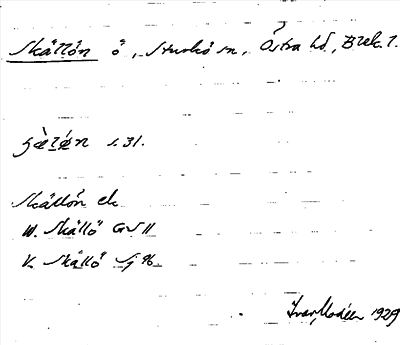 Skällön ö, Sturkö sn, Östra hd, Blek. l.
s. 31.
Skällön ek
Skällö GS 11
V. Skällö
Ivar Modéer 1929